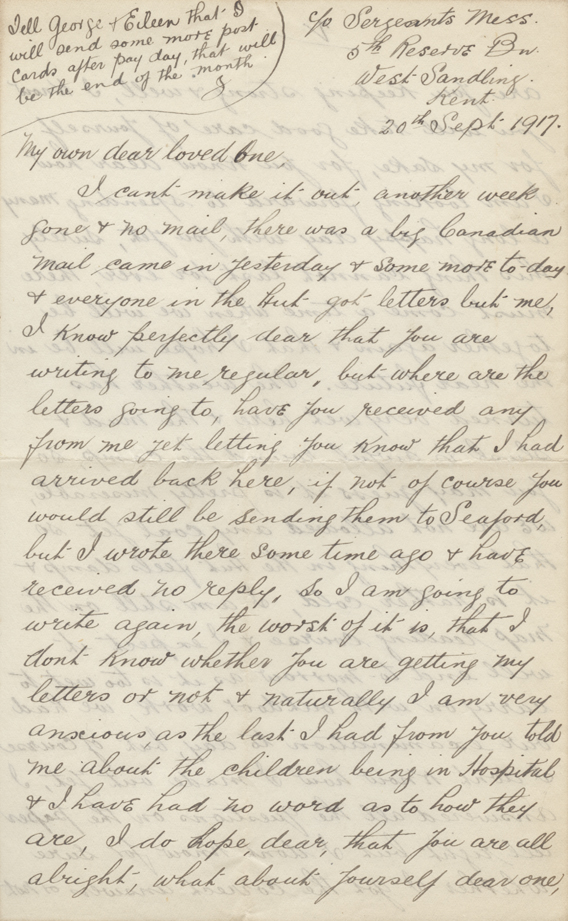 Tell George & Eileen that I
will send some more post
cards after pay day, that will
be the end of the month.
c/o Sergeants Mess.
5th Reserve Bn
West Sandling.
Kent.
20th Sept 1917.
My own dear loved One
I cant make it out, another week
gone & no mail, there was a big Canadian
mail came in yesterday & some more to-day
& everyone in the Hut got letters but me,
I know perfectly dear that you are
writing to me regular, but where are the
letters going to, have you received any
from me yet letting you know that I had
arrived back here, if not of course you
would still be sending them to Seaford,
but I wrote there some time ago & have
received no reply, so I am going to
write again, the worst of it is, that I
dont know whether you are getting my
letters or not & naturally I am very
anscious, as the last I had from you told
me about the children being in Hospital
& I have had no word as to how they
are, I do hope, dear, that you are all
alright, what about yourself dear one,